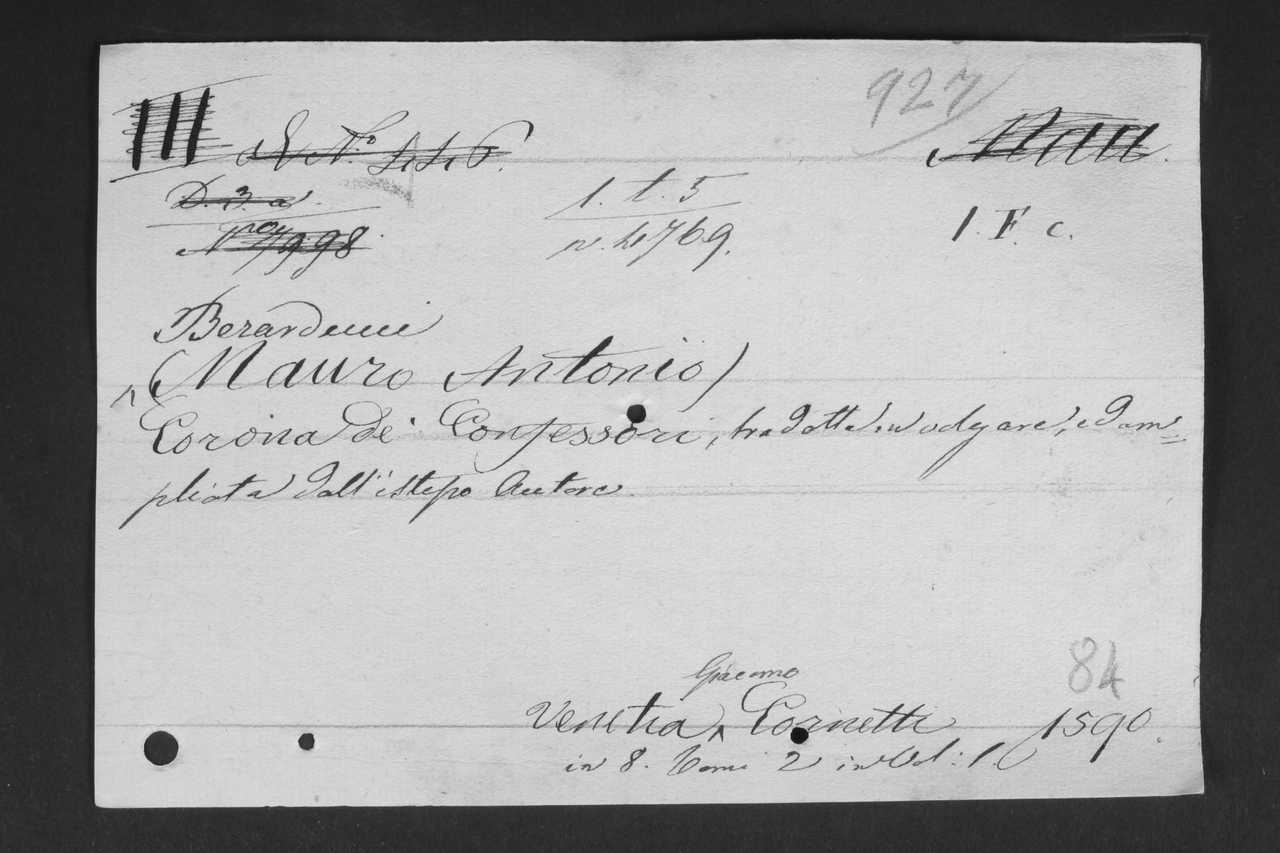 927
III
D. 3. a.
1. t. 5
n. 4769.
1. F. c.
Berarducci
(Mauro Antonio)
Corona de' Confessori, tradotta in volgare, ed am=
pliata dall'istesso Autore.
84
Giacomo
Venetia Cornetti 1590.
in 8. Tomi 2 in Vol: 1.